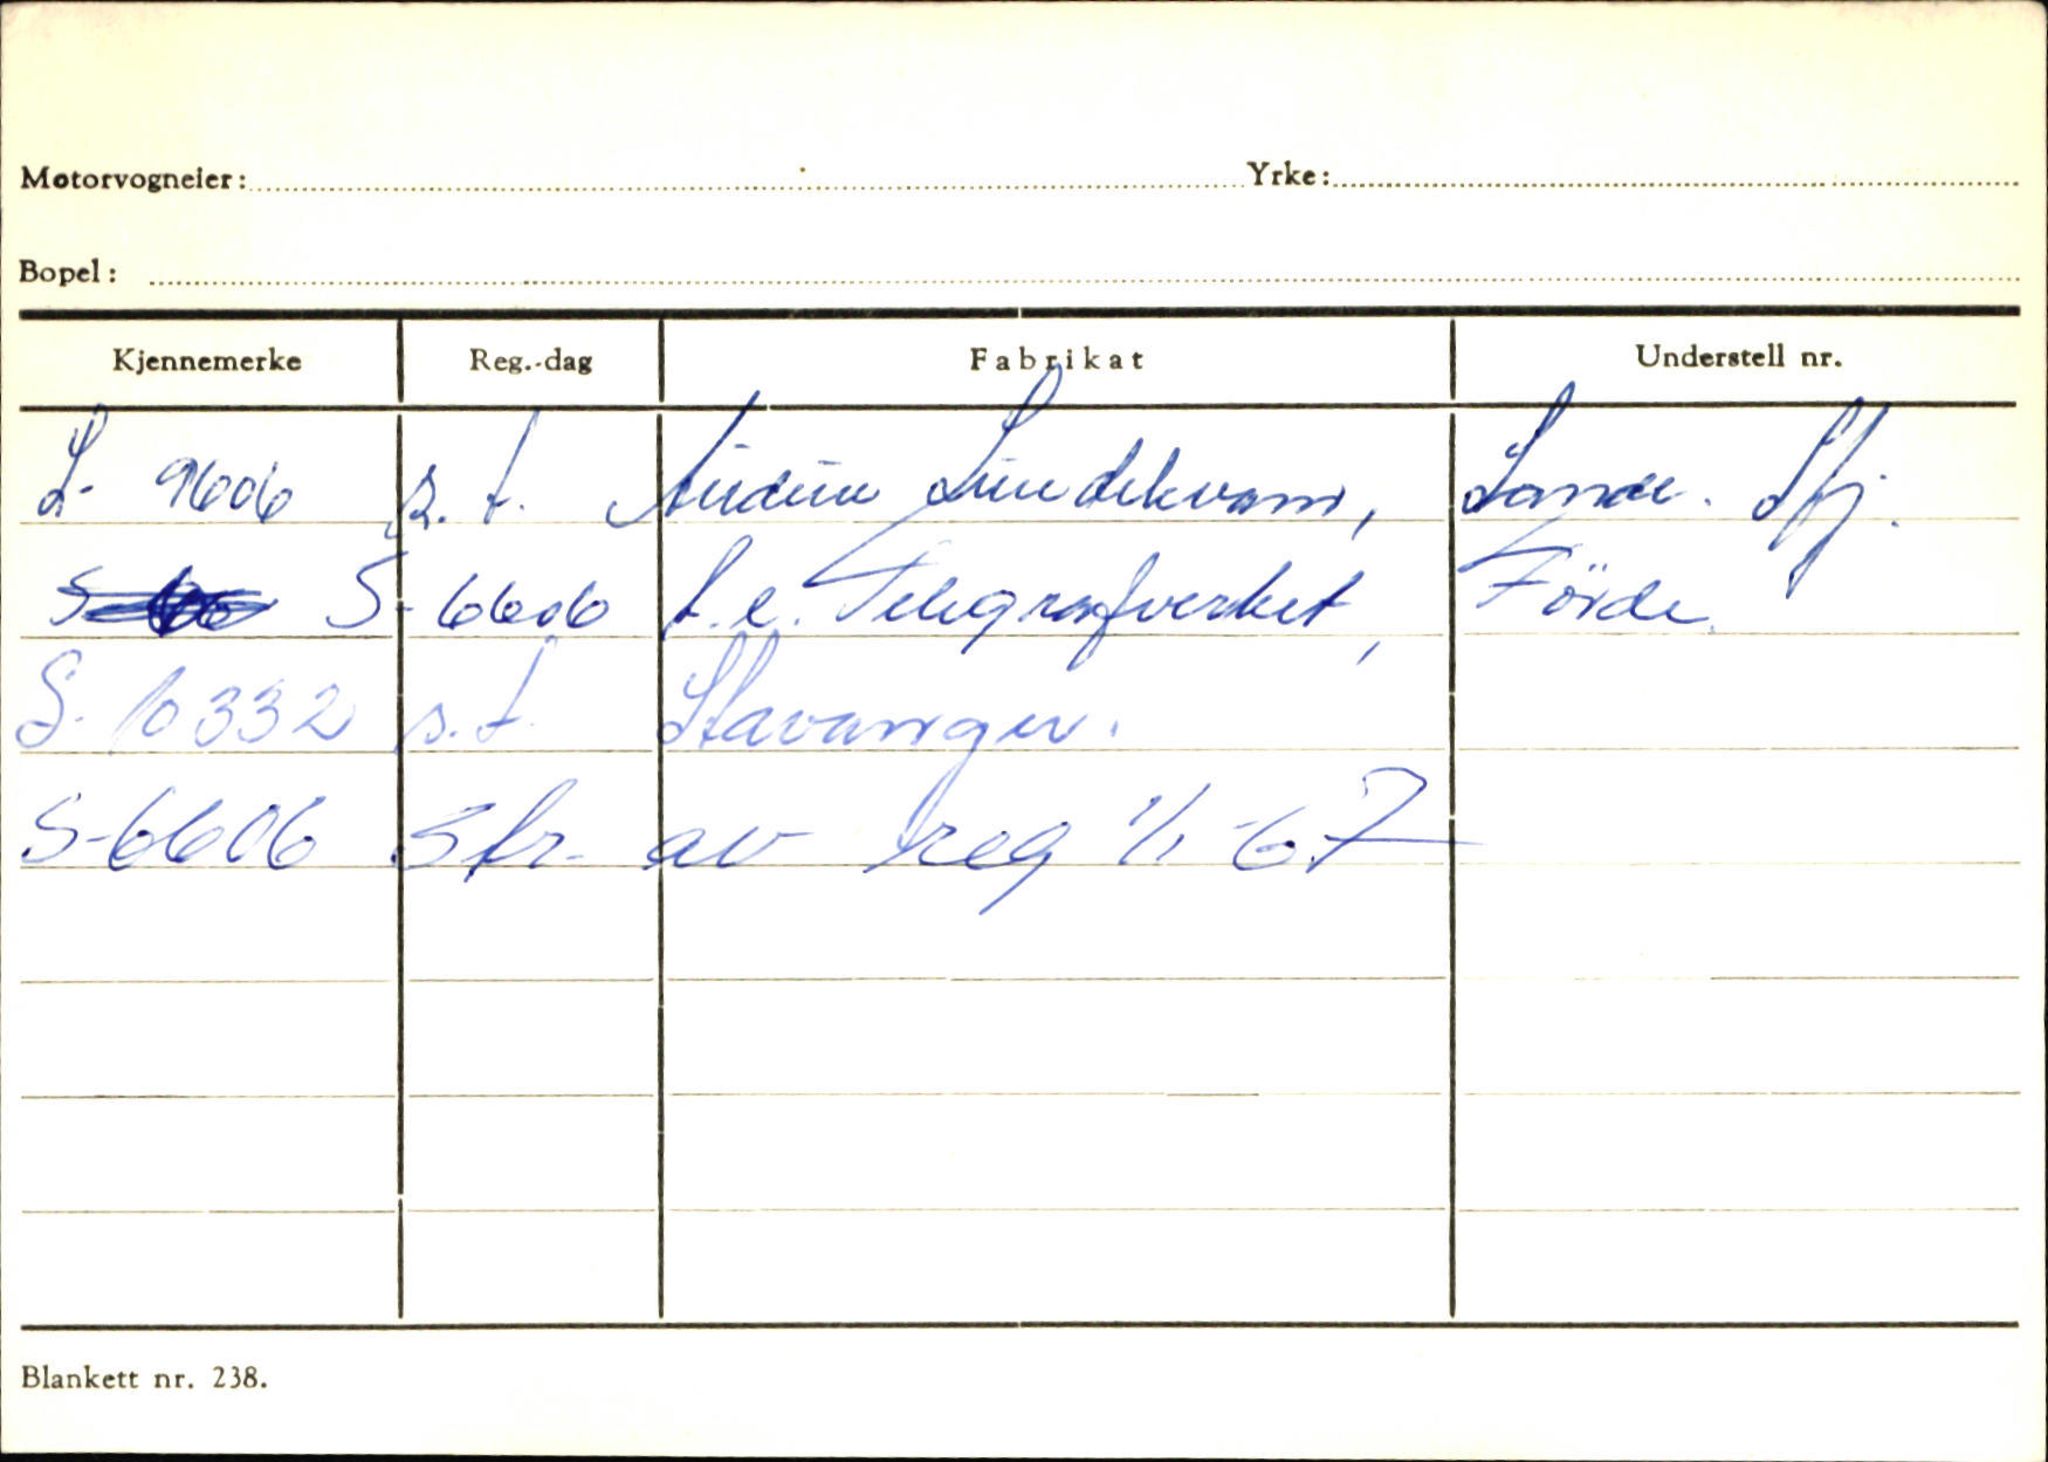 Motorvogneier: Yrke:
Bopel:
Kjennemerke Reg.-dag Fabrikat Understell nr.
S- 9606 s. t. Audun Lundekvam, Sande. Sfj.
S-6606 t. e. Telegrafverket, Förde
S- 10332 s. t. Stavanger.
S-6606 Str. av reg 1/1-67
Blankett nr. 238.